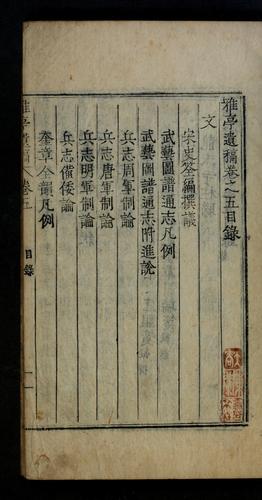 雅亭遺稿卷之五目錄
文
宋史筌編撰議
武藝圖譜通志凡例
武藝圖譜通志附進說
兵志周軍制論
兵志唐軍制論
兵志明軍制論
兵志備倭論
奎章全韻凡例
雅亭遺稿 卷五
目錄
一